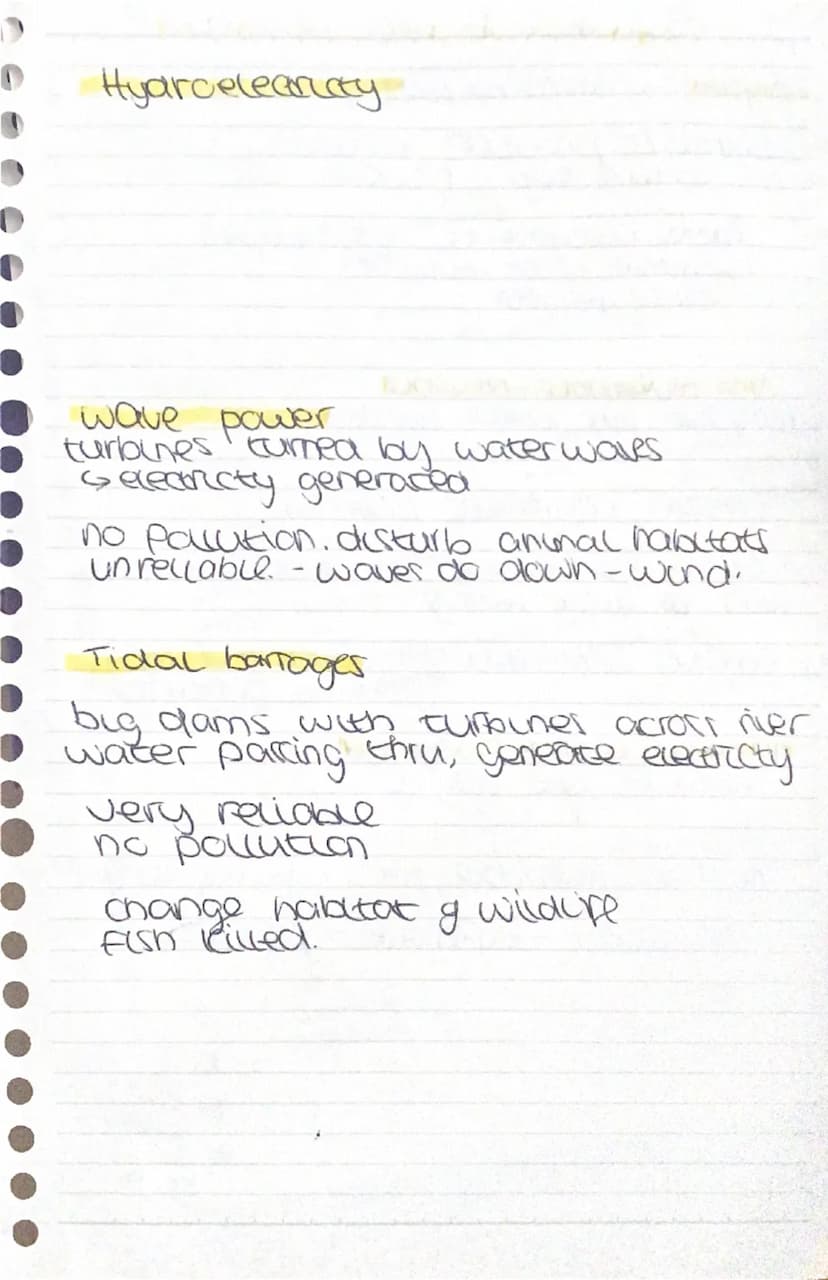 Hydroelectricity
wave power
turbines turned by water waves
↳ electricty generated
no pollution. disturb animal habitats
unreliable. - waves do down - wind.
Tidal barrages
big dams with turbines across river
water passing thru, generate electricty
very reliable
no pollution
change habitat of wildlife
fish killed.